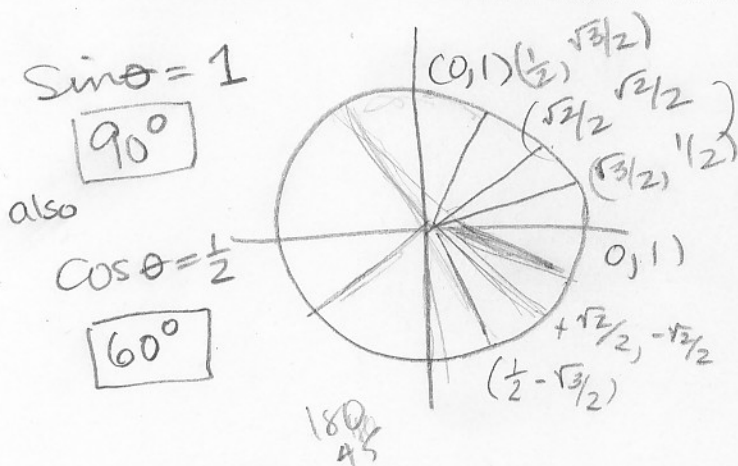 Sinθ = 1
90°
also
Cosθ = 1/2
60°
(0,1) (1/2, √3/2)
(√2/2 √2/2)
(√3/2, 1/2)
0, 1)
+√2/2, -√2/2
(1/2 - √3/2)
180
45